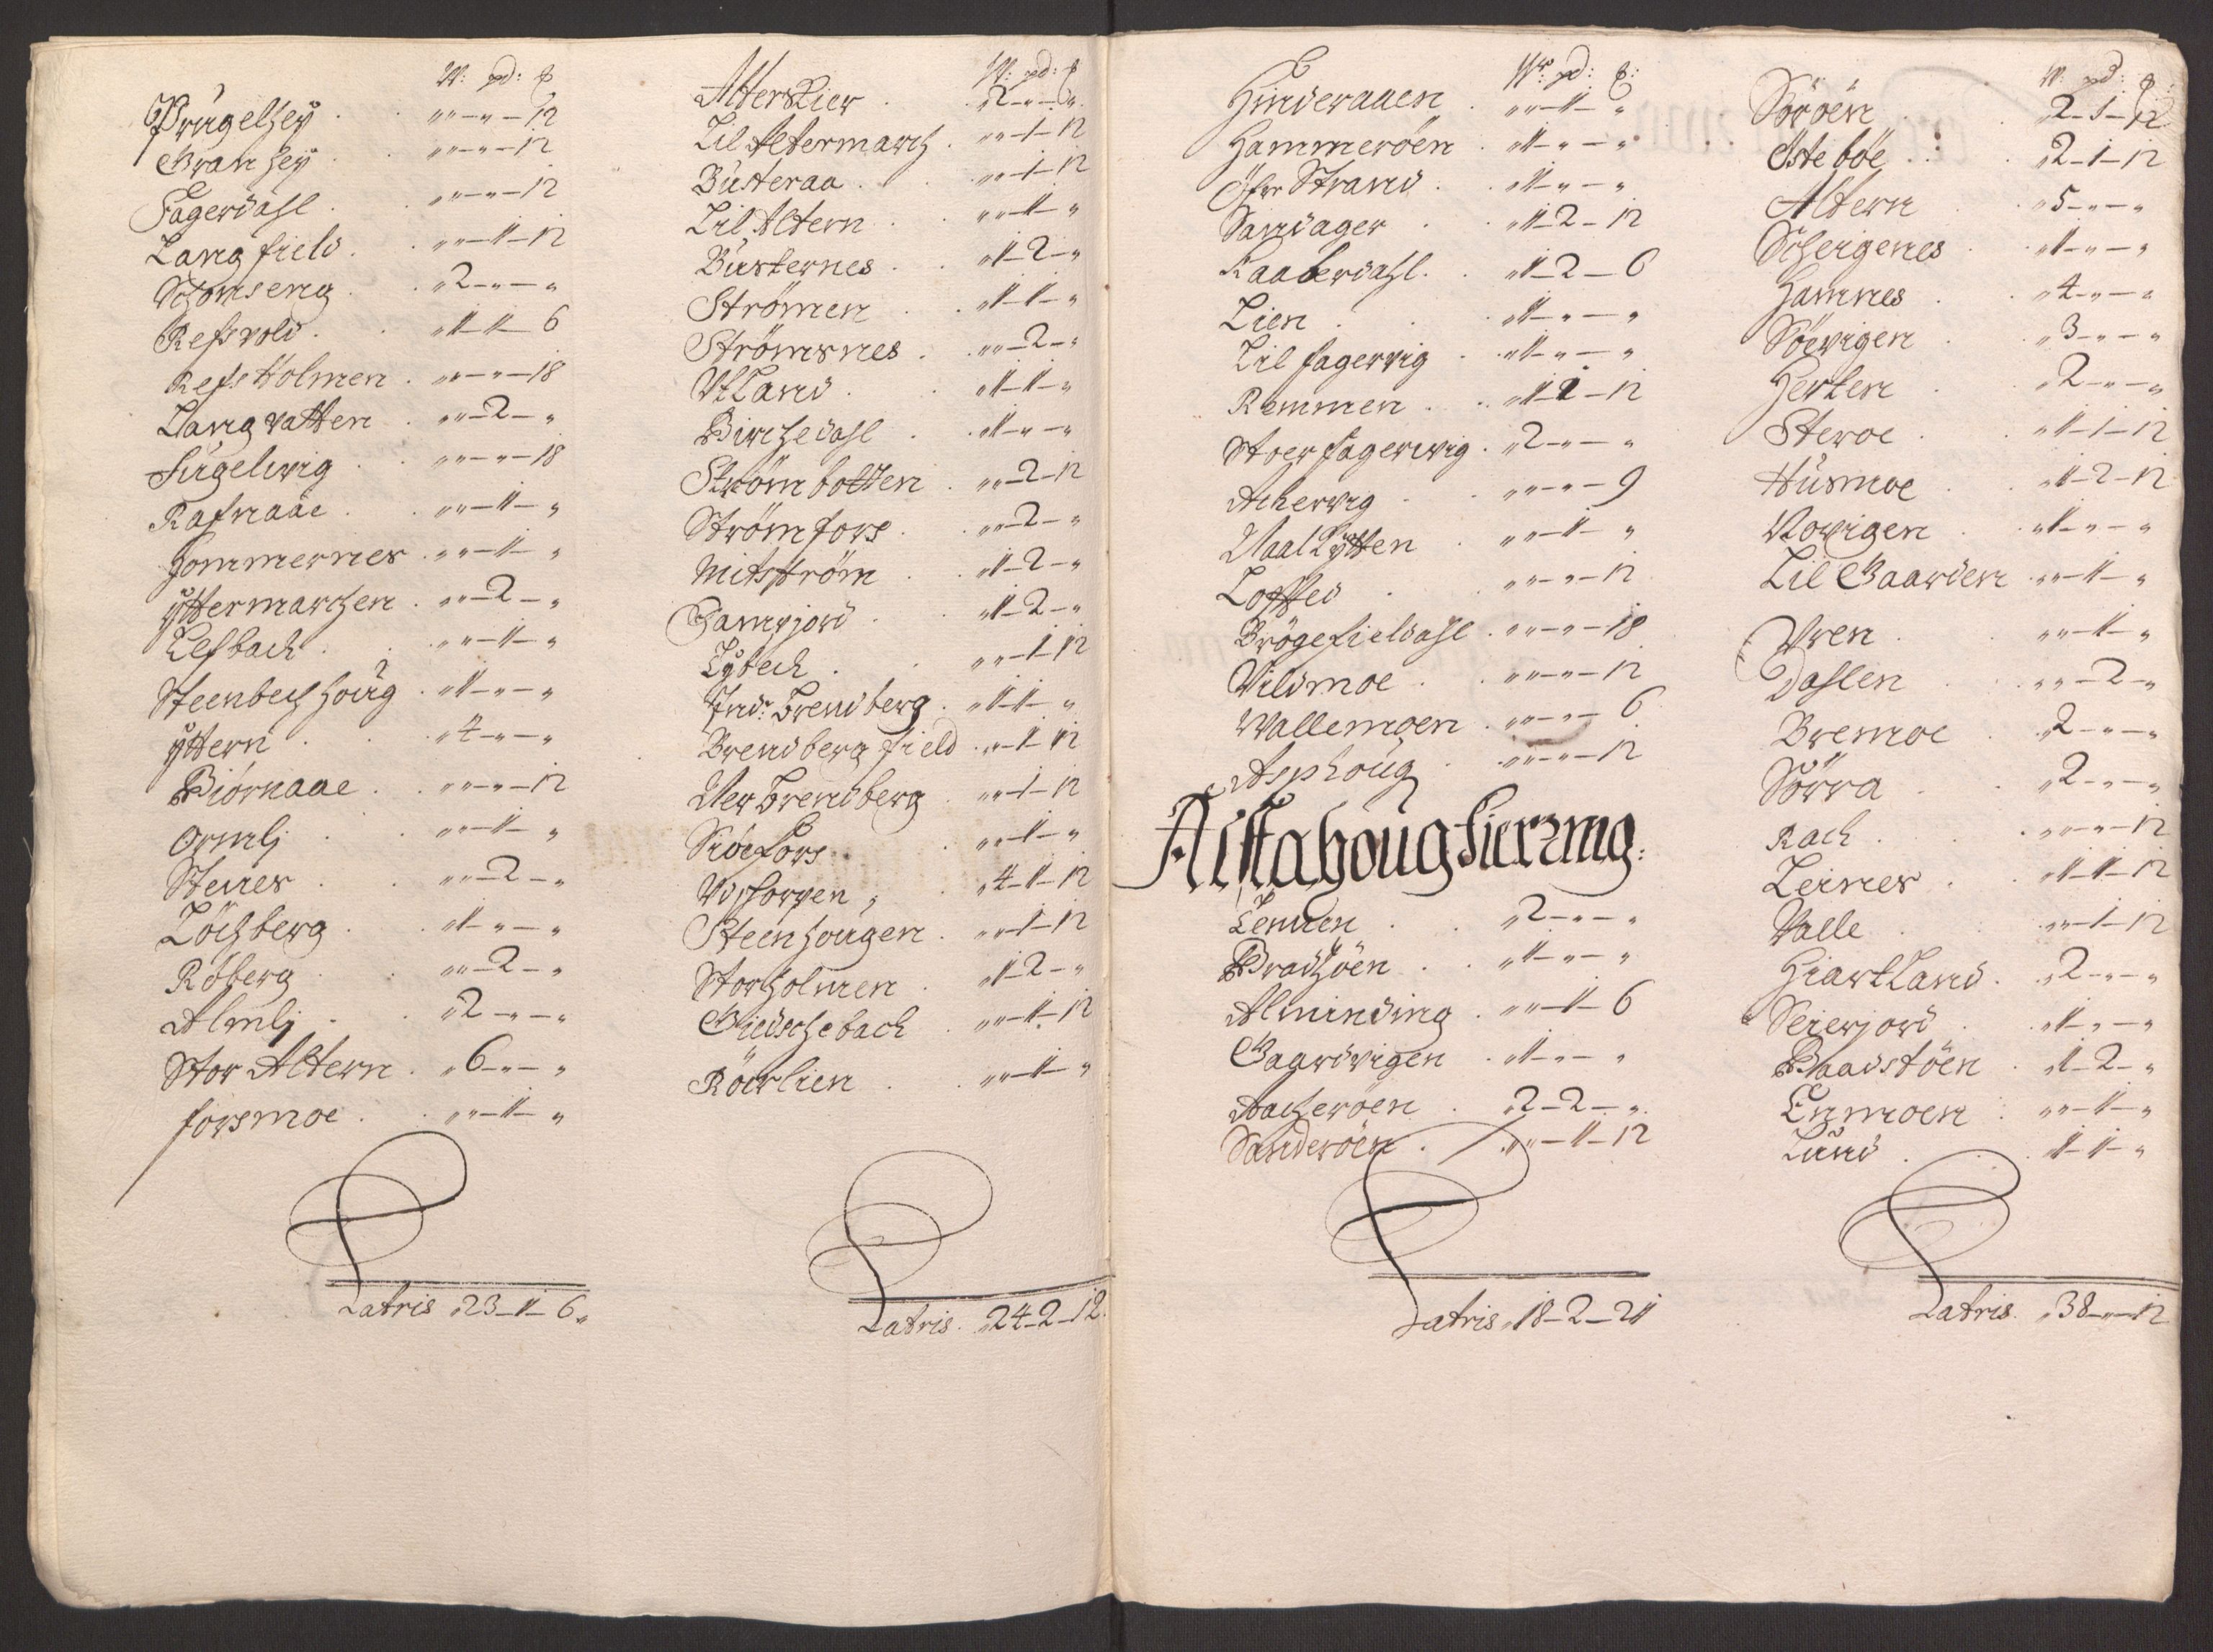 W: pd: ℔
Prügelhey . . „„ – „ – 12
Granhey . . „„ – „ – 12
Fagerdahl . . „„ – „ – 12
Langfield . . „„ – 1 – 12
Schonseng . . „2 – „ – „
Refsvold . . „1 – 1 – 6
Refs Holmen . „„ – „ – 18
Langvatten . „„ – 2 – „
Fügelwig . . „„ – „ – 18
Rafnaae . . „„ – 1 – „
Hommernes . „„ – 1 – „
Yttermarchen . „„ – 2 – „
Elfbach . . „„ – 1 – „
Steenbech houg . „1 – „ – „
Yttern . . „4 – „ – „
Biörnaae . . „„ – „ – 12
Ormlj . . „„ – 1 – „
Stenes . . „„ – 2 – „
Löchberg . . „1 – „ – „
Röberg . . „„ – 2 – „
Almlj . . „2 – „ – „
Stor Altern . „6 – „ – „
forsmoe . . „„ – 1 – „
Latris „23 – 1 – 6„
W: pd: ℔
Alterskier . „2 – „ – „
Lil Altermarch . „„ – 1 – 12
Büsteraa . . „„ – 1 – 12
Lil Altern . . „„ – 1 – „
Büsternes . . „1 – 2 – „
Strömen . . „1 – 1 – „
Strömsnes . . „„ – 2 – „
Utland . . „1 – 1 – „
Birchedahl . . „1 – „ – „
Strömbotten . „„ – 2 – 12
Strömfors . . „„ – 2 – „
Mitström . . „1 – 2 – „
Ganvjord . . „1 – 2 – „
Lybech . . „„ – 1 – 12
Indr Brendberg . „1 – 1 – „
Brendberg field . „„ – 1 – 12
Uer Brendberg . „„ – 1 – 12
Siöefors . . „„ – 1 – „
Udschorpen „ „4 – 1 – 12
Steenhougen . „„ – 1 – 12
Storholmen . „1 – 2 – „
Giedschebach . „„ – 1 – 12
Röerlien . . „„ – 1 – „
Latris . „24 – 2 – 12.
Wr: pd: ℔:
Hinderaaen . „„ – 1 – „
Hammeröen . „1 – „ – „
Öfre Strand . . „1 – „ – „
Sandager . . „1 – 2 – 12
Raaberdahl . . „1 – 2 – 6
Lien . . „1 – „ – „
Lil fagervig . „1 – „ – „
Remmen . . „1 – 2 – 12
Stoer fagerwig . „2 – „ – „
Achervig . . „„ – „ – 9
Naal Lytten . „„ – 1 – „
Lofted . . „„ – „ – 12
Brögefieldahl . „„ – „ – 18
Vildmoe . . „„ – „ – 12
Wallemoen . „„ – „ – 6
Asphoug . „„ – „ – 12
Alstahoug Fierzing:
Tennen . . „2 – „ – „
Bradhöen . . „1 – „ – „
Alminding . „„ – 1 – 6
Gaardvigen . „1 – „ – „
Aacheröen . „2 – 2 – „
Sanderöen . „„ – 1 – 12
Latris „18 – 2 – 21
W: pd: ℔:
Söröen . . „2 – 1 – 12
Östeböe . . „2 – 1 – 12
Altern . . „5 – „ – „
Scheigenes . „1 – „ – „
Hamnes . . „4 – „ – „
Söevigen . . „3 – „ – „
Herten . . „2 – „ – „
Steroe . . „1 – 1 – 12
Hüsmoe . . „1 – 2 – 12
Novigen . . „1 – „ – „
Lil Gaarden . „„ – 1 – „
Uren . . „„ – 1 – „
Dahlen . . „„ – 2 – „
Bremoe . . „2 – „ – „
Sörra . . „2 – „ – „
Rach . . „„ – „ – 12
Leines . . „1 – 1 – 12
Valle . . „„ – 1 – 12
Hiartland . . „2 – „ – „
Seierjord . . „1 – „ – „
Baadstöen . „1 – 2 – „
Enmoen . „„ – 1 – „
Lund . . „1 – 1 – „
Latris . „38 – „ – 12